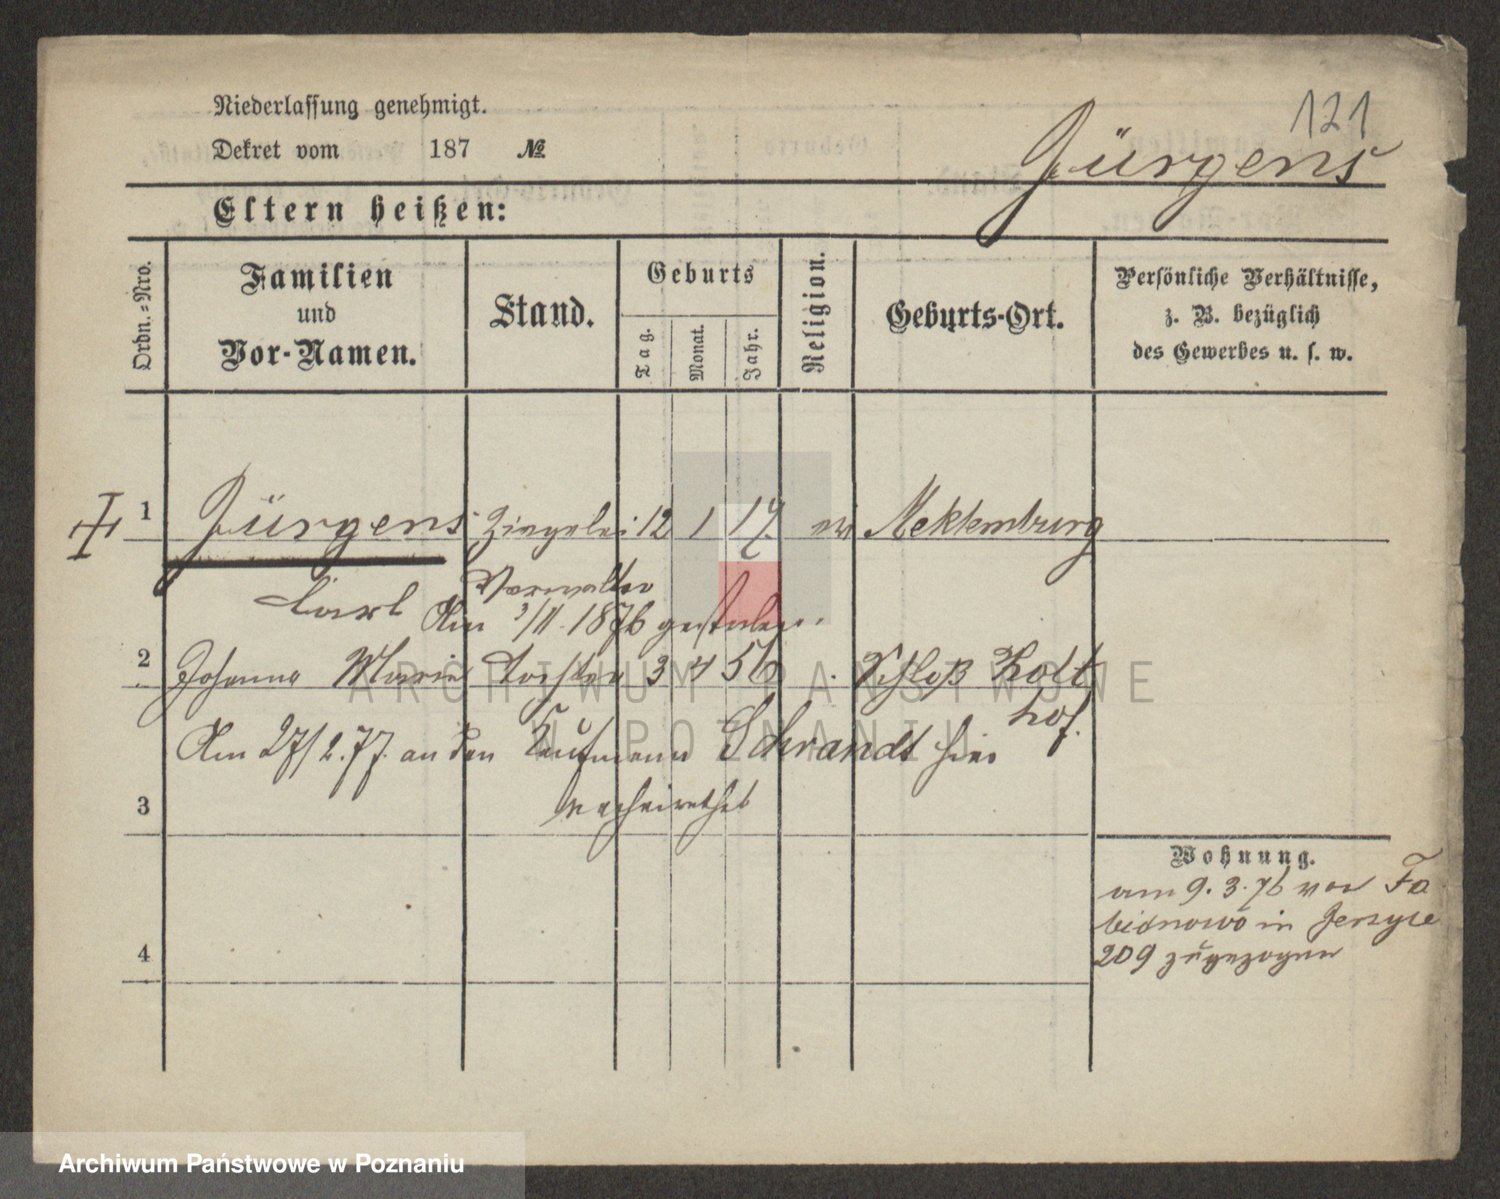 121
Niederlassung genehmigt.
Dekret vom 187 №
Jürgens
Eltern heißen:
Ordn.-Nro.
Familien
und
Vor-Namen.
Stand.
Geburts
Tag.
Monat.
Jahr.
Religion.
Geburts-Ort.
Persönliche Verhältnisse,
z. B. bezüglich
des Gewerbes u. s. w.
1 Jürgens Ziegelei 12 1 17. ev Meklemburg
Carl Verwalter
Am 3/11. 1876 gestorben.
2 Johanna Marie Tochter 3 4 56 Schloß Holt
hof.
Am 27/2.77. an den Kaufmann Schrandt hier
3 verheirathet
Wohnung.
am 9. 3. 76 von Fa
bianowo in Jersyce
209 zugezogen
4
ARCHIWUM PAŃSTWOWE
W POZNANIU
Archiwum Państwowe w Poznaniu